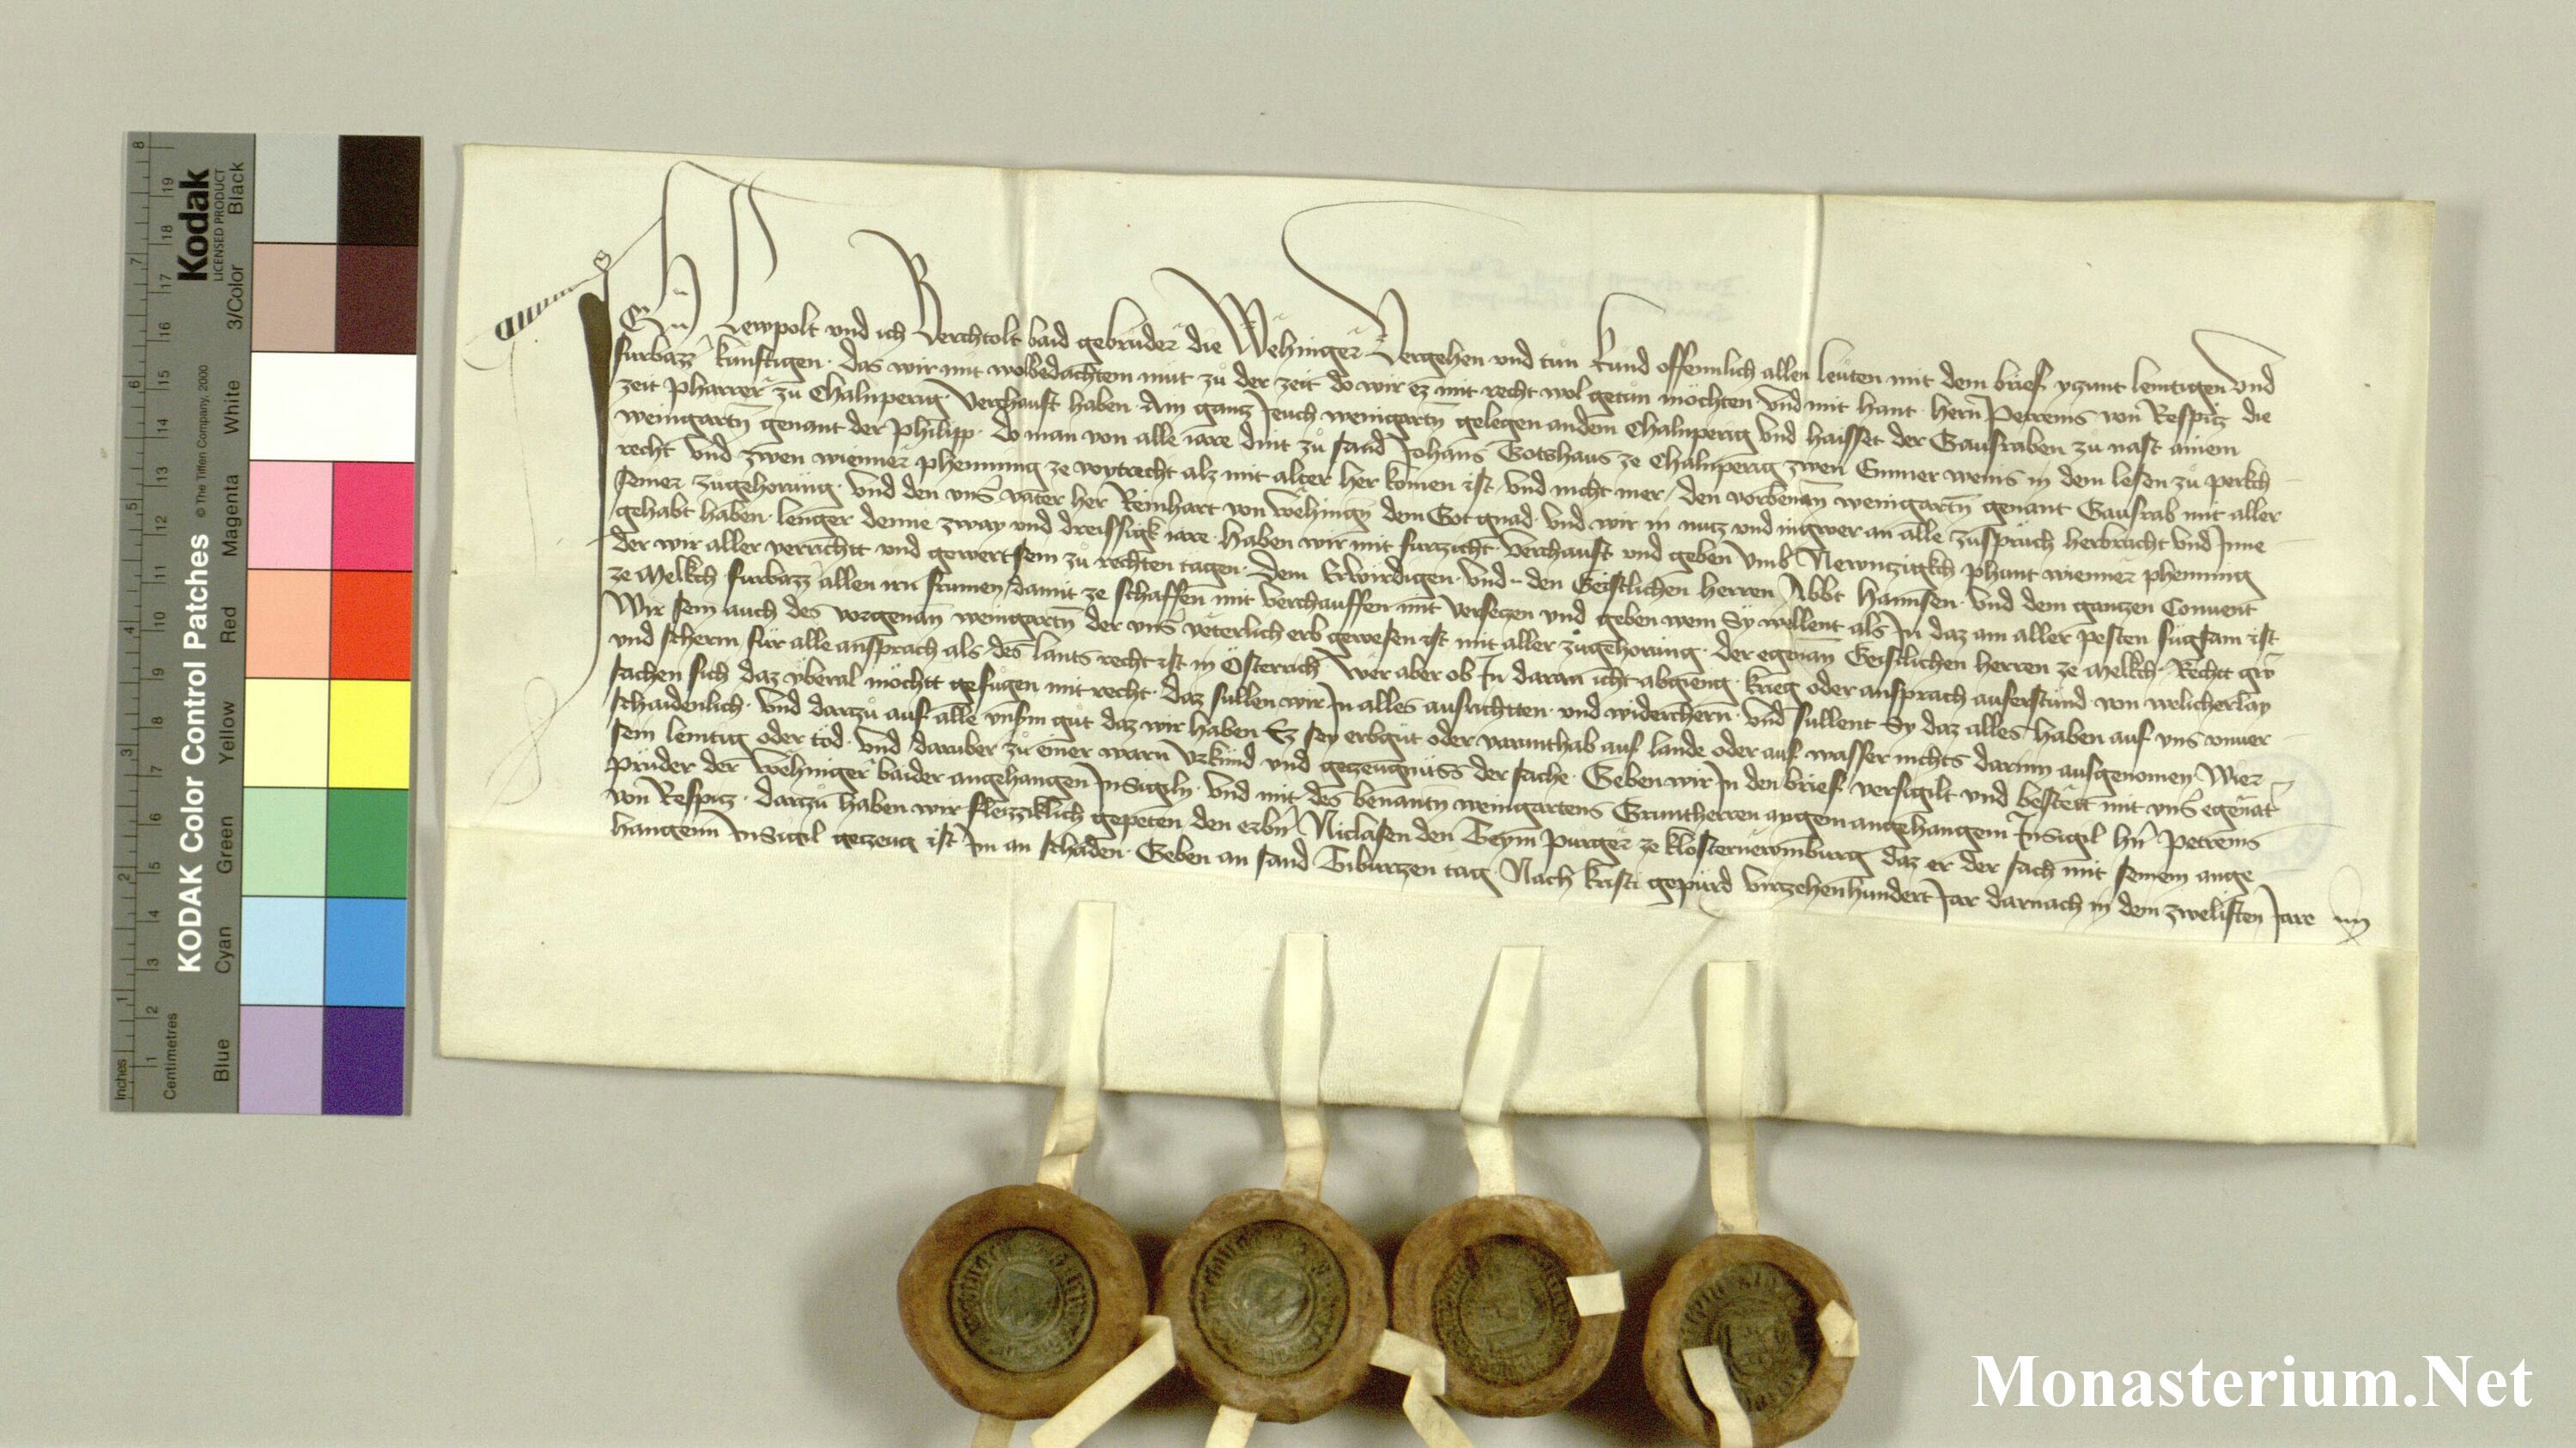 Ich Lewpolt vnd ich Berchtolt baid gebruder die Wehinger Vergehen vnd tun kund offennlich allen leuten mit dem brief yczunt lemtigen vnd
furbazz kunftigen das wir mit wolbedachtem mut zu der zeit do wir ez mit recht wol getun mochten vnd mit hant hern Petreins von Respicz die
zeit pharrer zu Chalnperig Verchauft haben Ain gancz Jeuch weingartn gelegen an dem Chalnperig vnd haisset der Gausraben zu nast ainem
weingartn genant der Philipp do man von alle iare dint zu sand Johans Gotshaus ze Chalnperig zwen Emmer weins in dem lesen zu perkch
recht vnd zwen wienner phenning ze voytrecht alz mit alter her komen ist vnd nicht mer den vorbenan weingartn genant Gausrab mit aller
seiner zugehorung vnd den vns vater her Reinhart von Wehingn dem Got gnad vnd wir in nucz vnd in gwer an alle zuspruch herbracht vnd Inne
gehabt haben lenger denne zway vnd dreissigk iare haben wir mit furzicht verchauft vnd geben vmb Newnczigkch phunt wienner phenning
der wir aller verrichtt vnd gewert sein zu rechten tagen Dem Erwirdigen vnd den Geistlichen herren Abbt Hannsen vnd dem ganczen Conuent
ze Melkch furbazz allen irn frumen damit ze schaffen mit verchauffen mit verseczen vnd geben wem Sy wellent als In daz am aller pesten fugsam ist
Wir sein auch des vorgenan weingartn der vns veterlich erb gewesen ist mit aller zugehorung der egenan Geistlichen herren ze Melkch Rechtt gwr
vnd scherm fur alle ansprach als des lants recht ist in Osterrich Wer aber ob In daran icht abgieng krieg oder ansprach auferstund von welicherlay
sachen sich daz vberal mochtt gefugen mit recht daz sullen wir In alles ausrichtten vnd widerchern vnd sullent Sy daz alles haben auf vns vnuer
schaidenlich vnd darzu auf alle vnserm gut daz wir haben Ez sey erbgut oder varunthab auf lande oder auf wasser nichts darinn ausgenomen Wier
sein lemtig oder tod vnd daruber zu einer warn Vrkund vnd geczeugnuss der sache Geben wir In den brief versigilt vnd bestett mit vns egenat
pruder der Wehinger baider angehangen Insigiln vnd mit des benantn weingartens Gruntherren aygem angehangem Insigil hern Petreins
von Respicz darzu haben wir fleizziklich gepeten den erbn Niclasen den Teym purger ze klosternewnburg daz er der sach mit seinem ange
hangenn Insigil geczeug ist Im an schaden Geben an sand Tiburczen tag Nach kristi gepurd virczehenhundert Jar darnach in dem zweliften Jare
KODAK Color Control Patches © The Tiffen Company, 2000
Kodak
LICENSED PRODUCT
Inches 1 2 3 4 5 6 7 8
Centimetres 1 2 3 4 5 6 7 8 9 10 11 12 13 14 15 16 17 18 19
Blue Cyan Green Yellow Red Magenta White 3/Color Black
Monasterium.Net